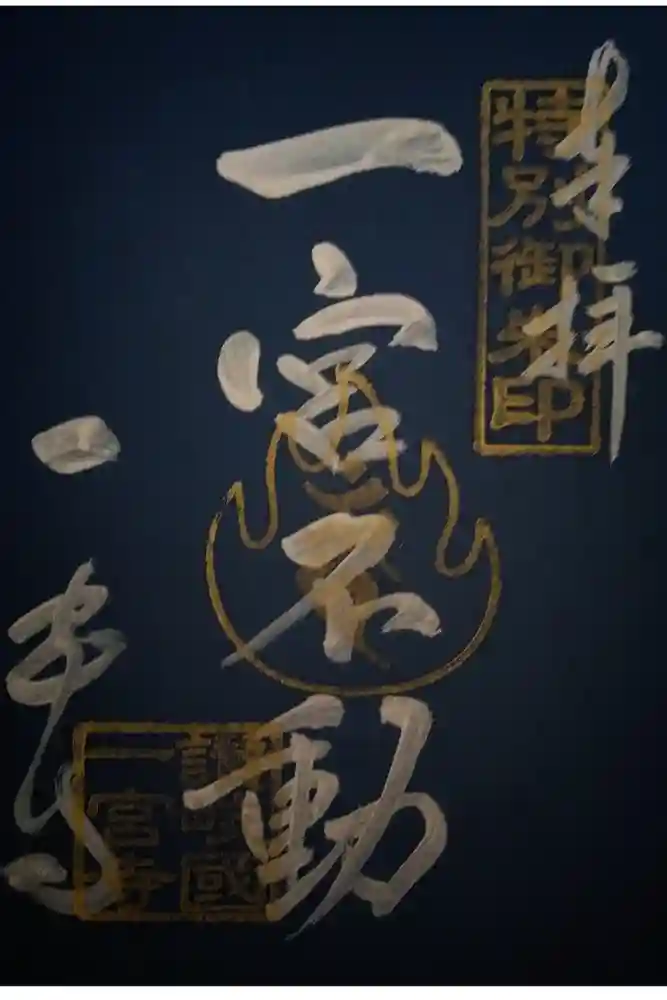 奉拝
特別御朱印
一宮不動
讃岐國
一宮寺
一宮寺